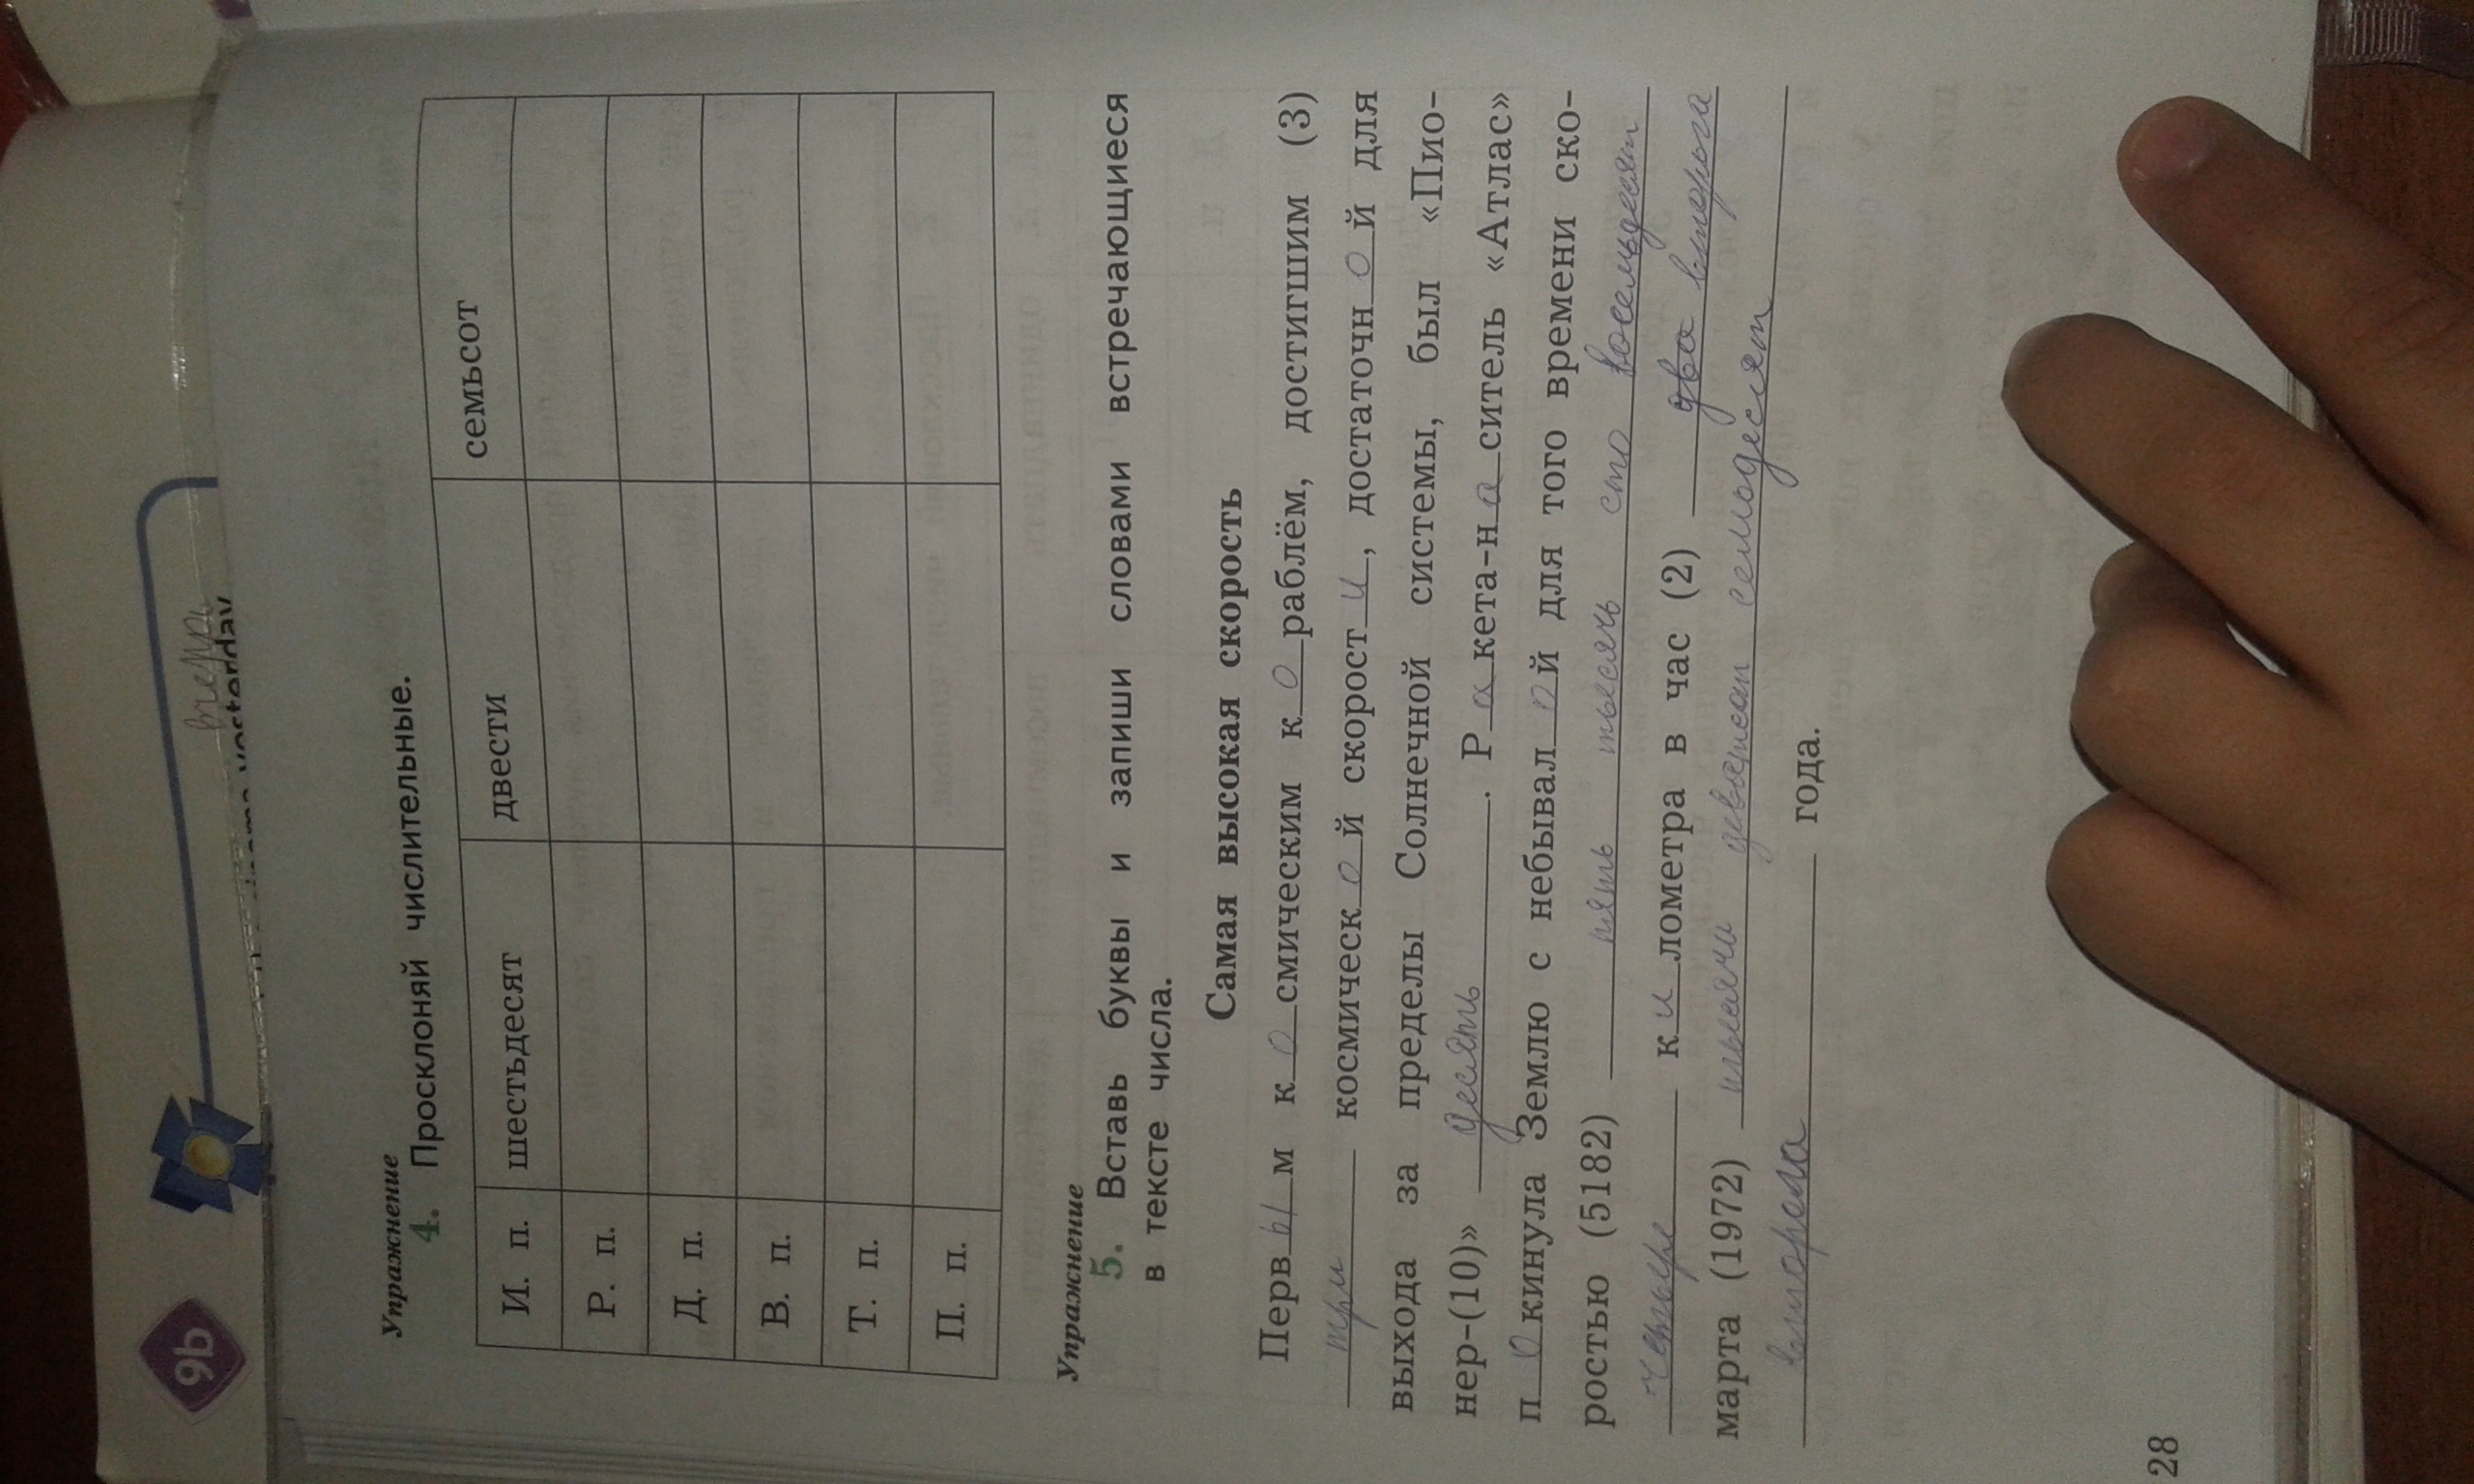 9b
Упражнение
4. Просклоняй числительные.
И. п. шестьдесят двести семьсот
Р. п.
Д. п.
В. п.
Т. п.
П. п.
Упражнение
5. Вставь буквы и запиши словами встречающиеся
в тексте числа.
Самая высокая скорость
Первым космическим кораблём, достигшим (3)
три космической скорости, достаточной для
выхода за пределы Солнечной системы, был «Пио-
нер-(10)» десять. Ракета-наситель «Атлас»
покинула Землю с небывалой для того времени ско-
ростью (5182) пять тысяч сто восемьдесят
четыре километра в час (2) два второга
марта (1972) тысячи девятсот семьдесят
второго года.
28